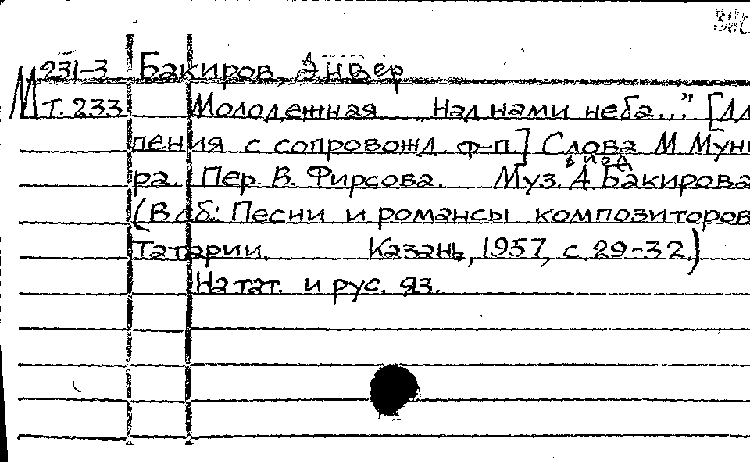 М 931-3 Бакиров, Энвер
Т. 233 Молодежная „Над нами неба...” [Для
пения с сопровожд. ф-п.] Слова М. Муни-
ра. Пер. В. Фирсова. Муз. А. Бакирова.
(В сб.: Песни и романсы композиторов
Татарии. Казань, 1957, с. 29-32.)
На тат. и рус. яз.